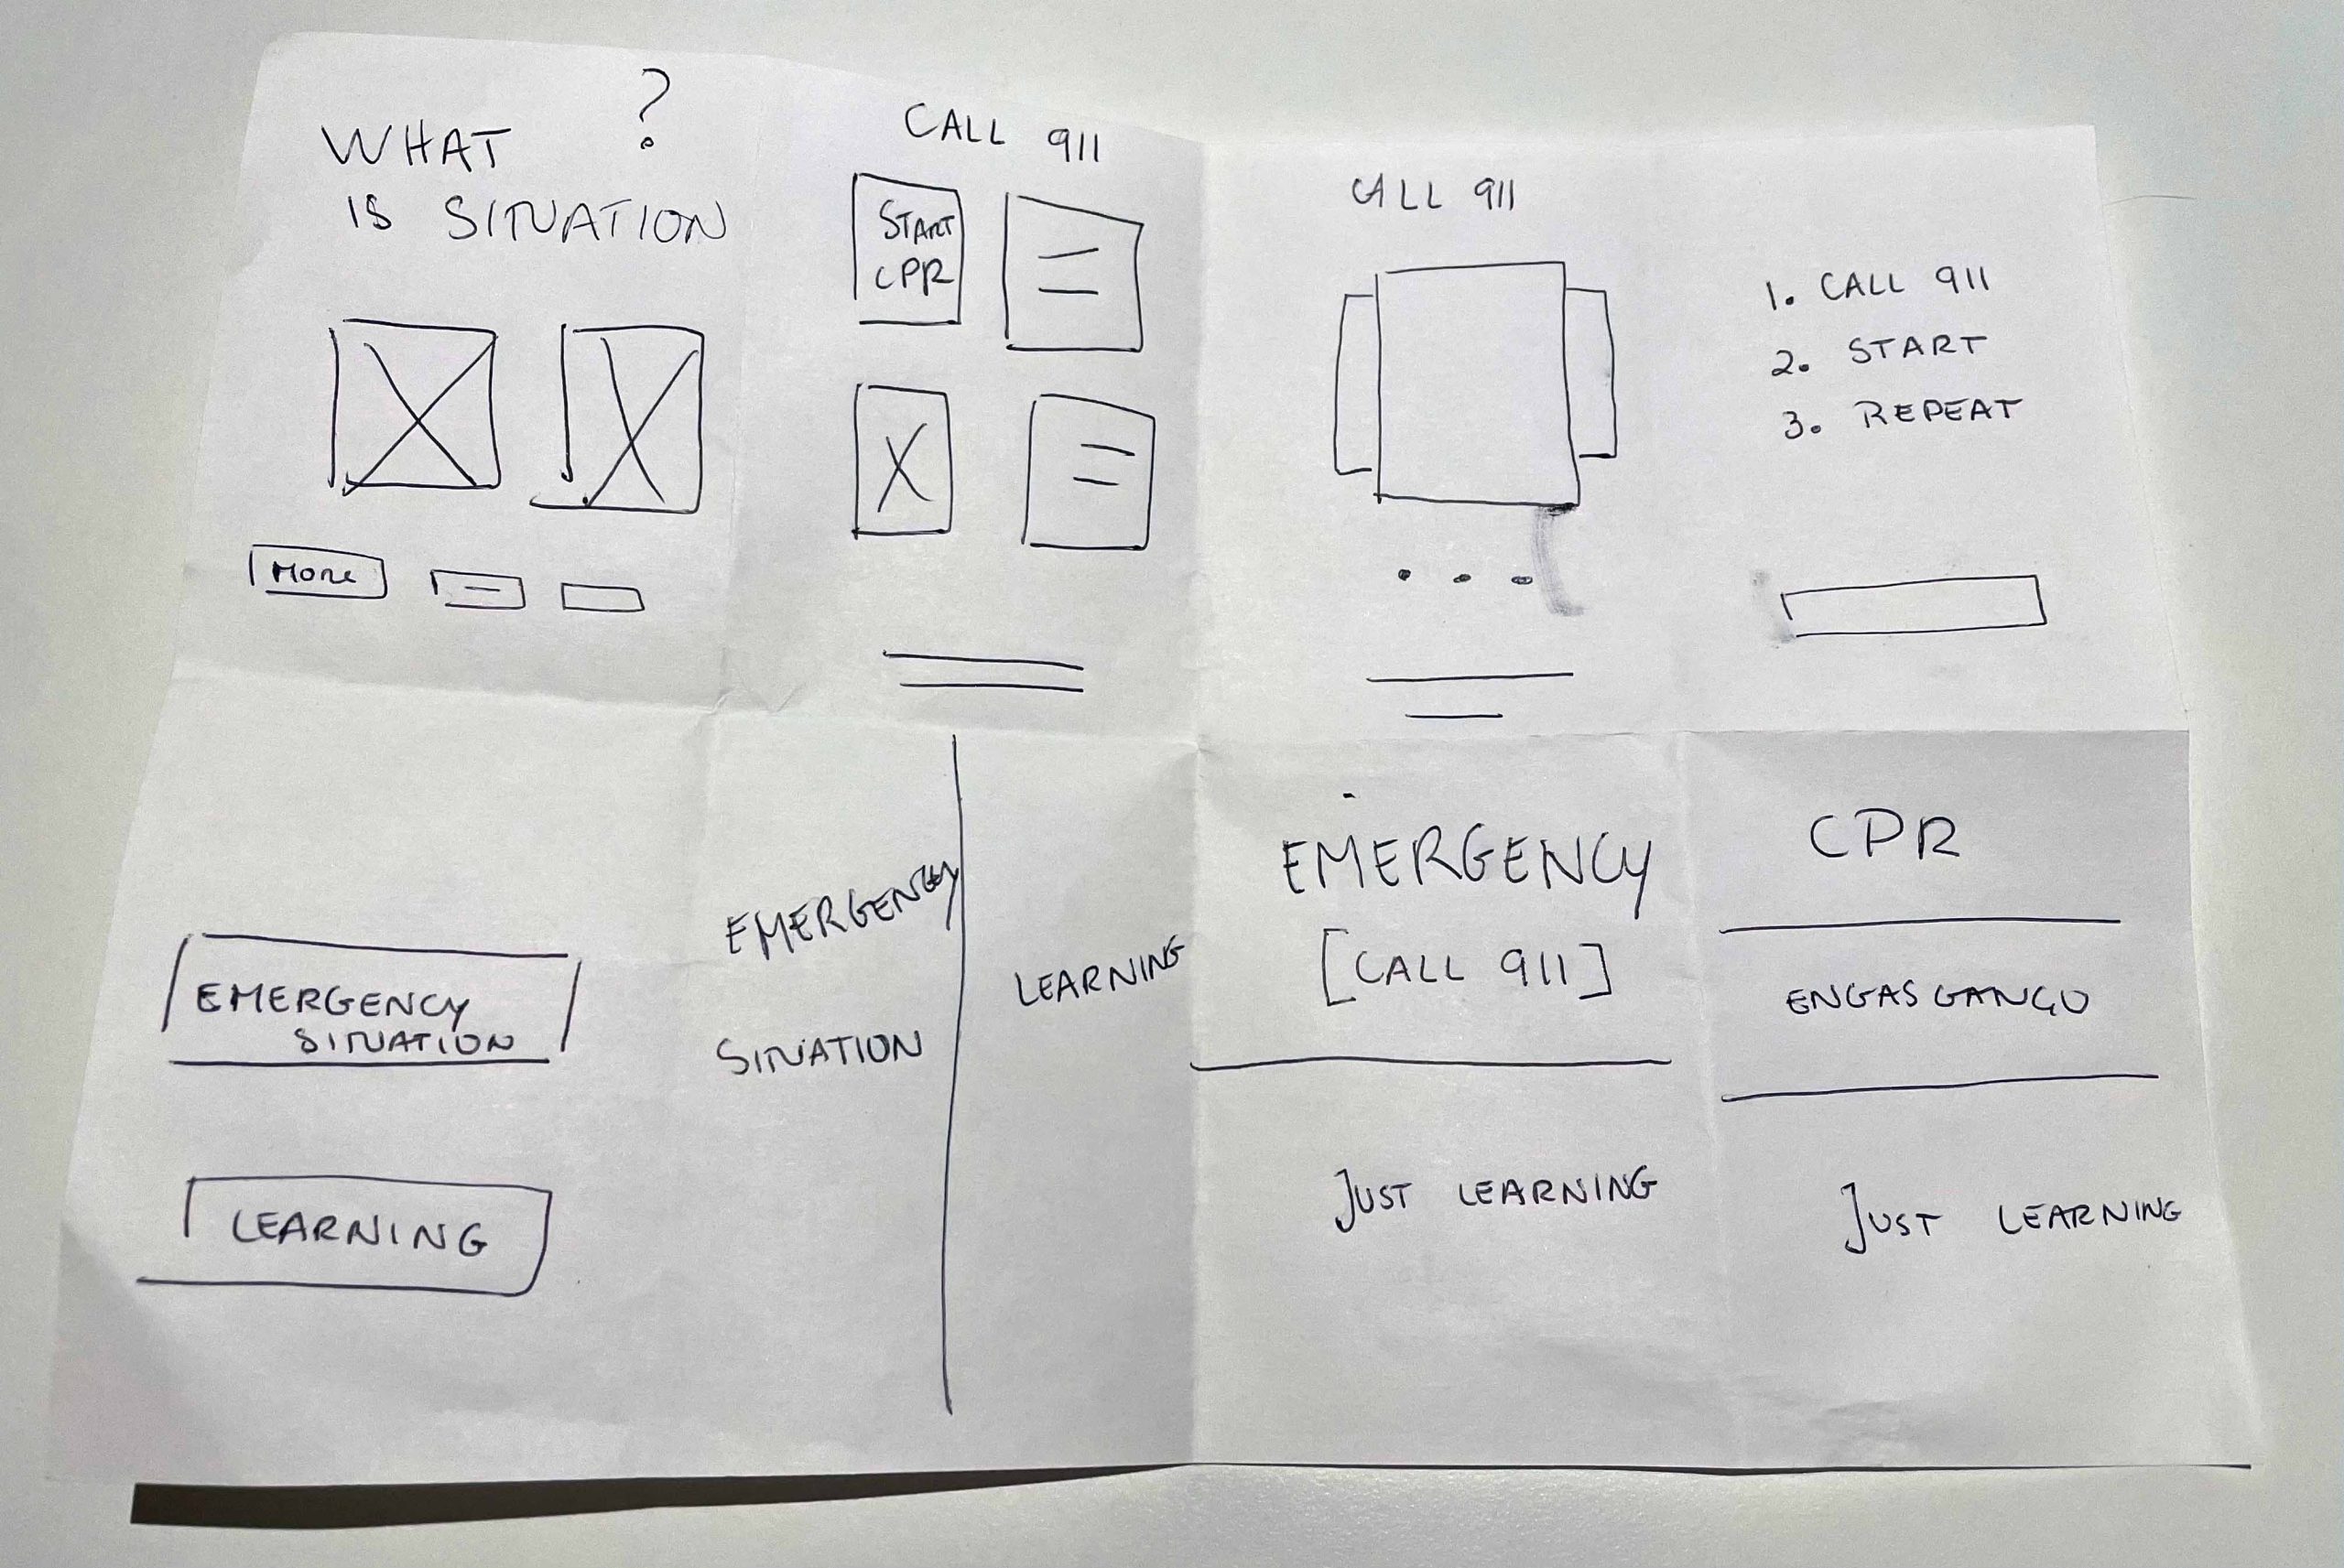 WHAT ?
IS SITUATION
MORE
CALL 911
START
CPR
CALL 911
1. CALL 911
2. START
3. REPEAT
EMERGENCY
SITUATION
LEARNING
EMERGENCY
SITUATION
LEARNING
EMERGENCY
[CALL 911]
JUST LEARNING
CPR
ENGASGANGO
JUST LEARNING